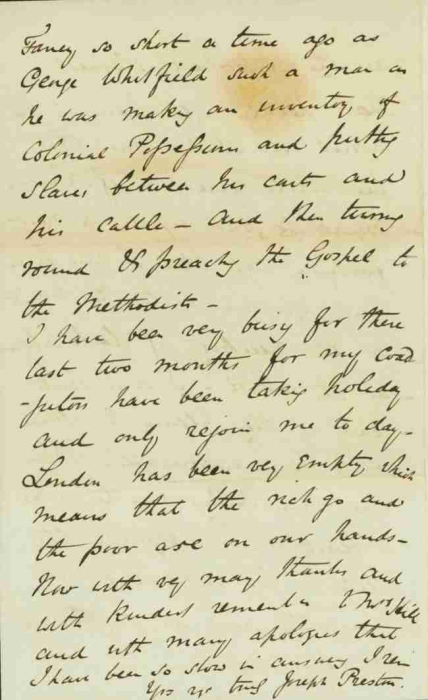 Fancy so short a time ago as
George Whitfield such a man as
he was making an inventory of
Colonial Possessions and putting
Slaves between his carts and
his cattle - and then turning
round & preaching the Gospel to
the Methodists -
I have been very busy for these
last two months for my coad
-jutors have been taking holiday
and only rejoin me to day -
London has been very Empty which
means that the rich go and
the poor are on our hands -
Now with very many thanks and
with kindest remembr to Mrs Hill
and with many apologies that
I have been so slow in answering I rem
Yrs truly Joseph Preston